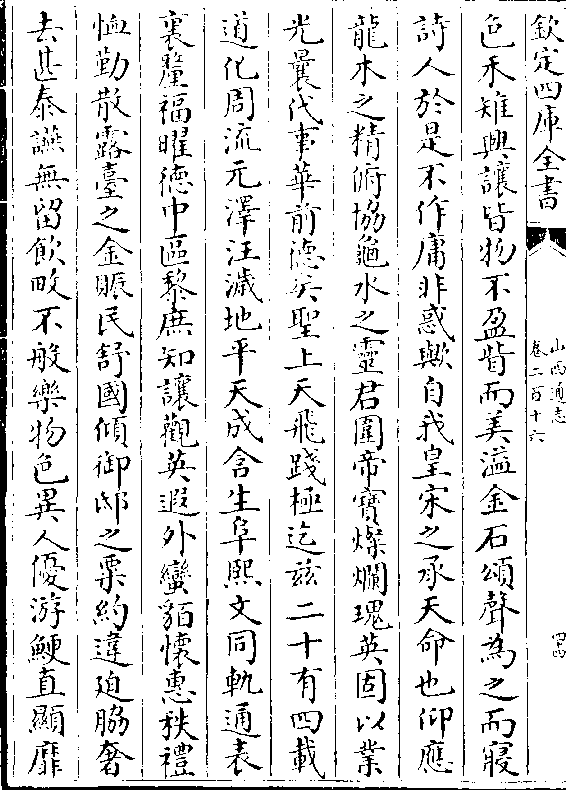 欽定四庫全書
山西通志
卷二百十六
四十四
色禾雉興讓皆物不盈眥而美溢金石頌聲為之而寢
詩人於是不作庸非惑歟自我皇宋之承天命也仰應
龍木之精俯協龜水之靈君圖帝寶燦爛瑰英固以業
光曩代事華前德矣聖上天飛踐極迄兹二十有四載
道化周流元澤汪濊地平天成含生阜熙文同軌通表
裏釐福曜德中區黎庶知讓觀英遐外蠻貊懷惠秩禮
恤勤散露臺之金賑民舒國傾御邸之粟約違迫脇奢
去甚泰讌無留飲畋不般樂物色異人優游鯁直顯靡